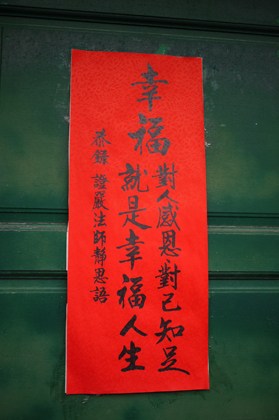 幸福
對人感恩對己知足
就是幸福人生
恭錄 證嚴法師靜思語